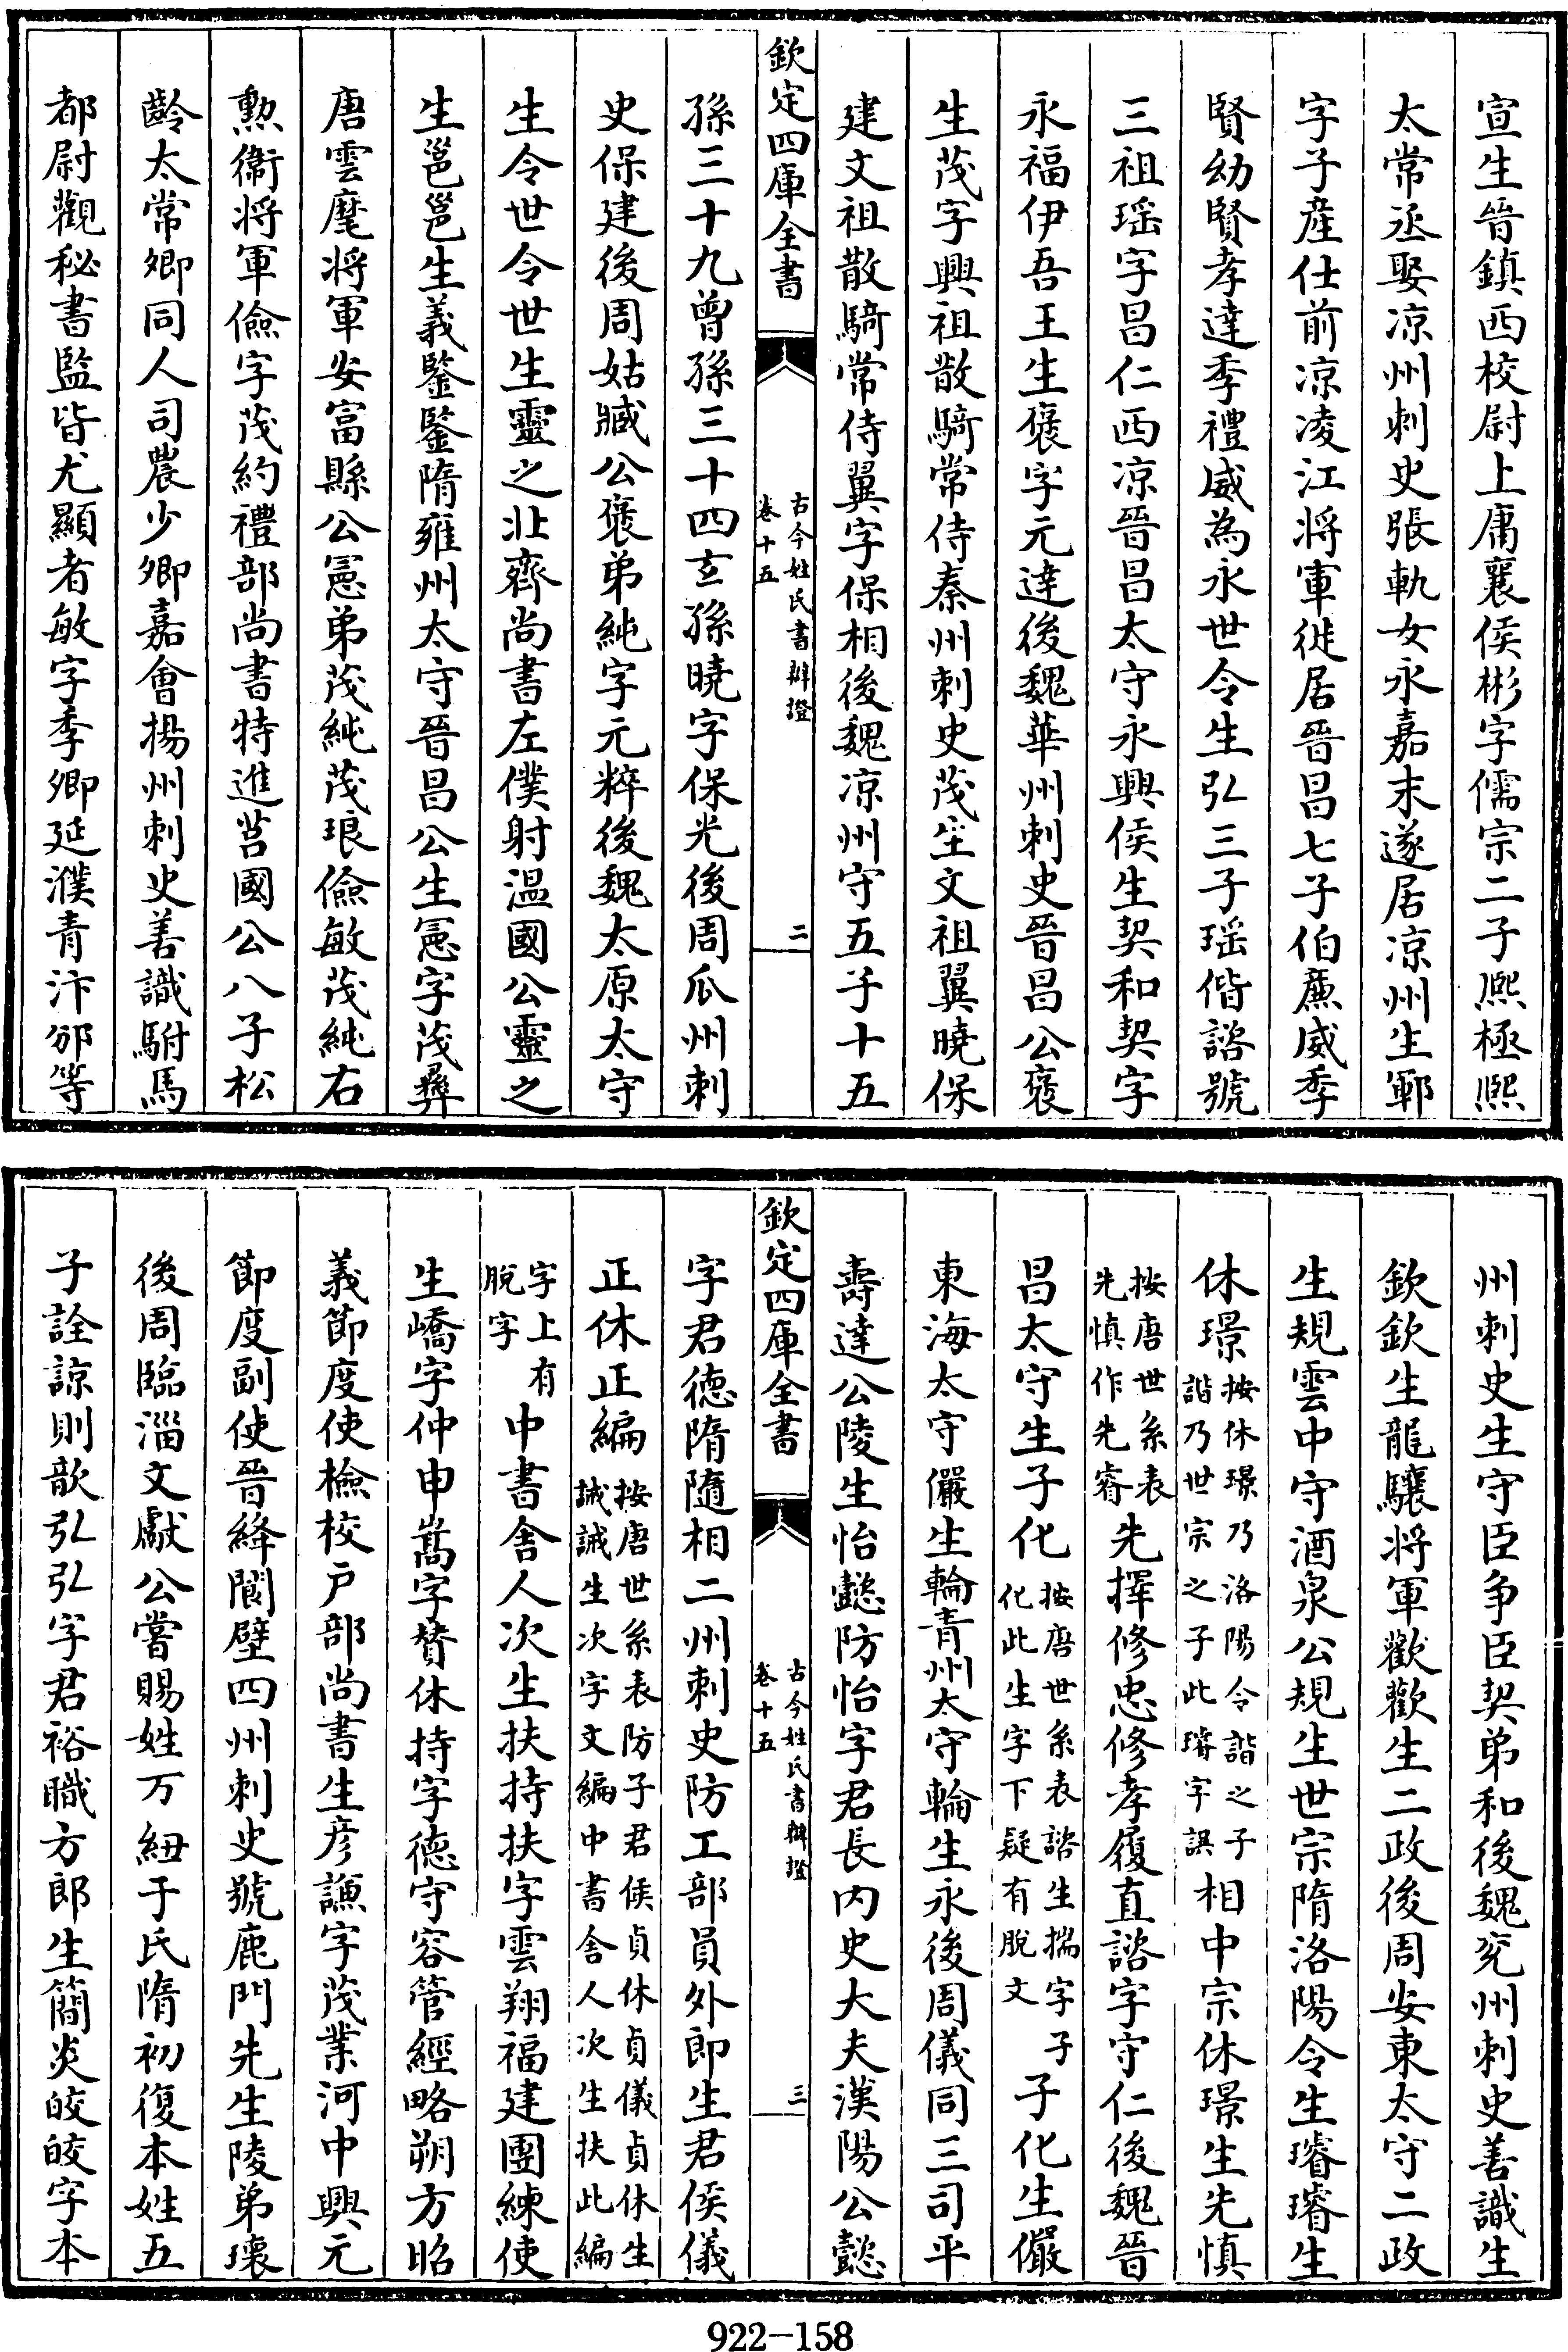 宣生晉鎮西校尉上庸襄侯彬字儒宗二子熈極熈
太常丞娶凉州刺史張軌女永嘉末遂居凉州生鄆
字子產仕前凉凌江将軍徙居晉昌七子伯廉威季
賢幼賢孝達季禮威為永世令生弘三子瑶偕諮號
三祖瑶字昌仁西凉晉昌太守永興侯生契和契字
永福伊吾王生褒字元達後魏華州刺史晉昌公褒
生茂字興祖散騎常侍秦州刺史茂生文祖翼曉保
建文祖散騎常侍翼字保相後魏凉州守五子十五
欽定四庫全書
古今姓氏書辯證
卷十五
二
孫三十九曾孫三十四玄孫曉字保光後周瓜州刺
史保建後周姑臧公褒弟純字元粹後魏太原太守
生令世令世生靈之北齊尚書左僕射温國公靈之
生邕邕生義鑒鑒隋雍州太守晉昌公生憲字茂彜
唐雲麾将軍安富縣公憲弟茂純茂琅儉敏茂純右
勲衛将軍儉字茂約禮部尚書特進莒國公八子松
齡太常卿同人司農少卿嘉會揚州刺史善識駙馬
都尉觀秘書監皆尤顯者敏字季卿延濮青汴邠等
州刺史生守臣争臣契弟和後魏兖州刺史善識生
欽欽生龍驤将軍歡歡生二政後周安東太守二政
生規雲中守酒泉公規生世宗隋洛陽令生璿璿生
休璟按休璟乃洛陽令諧之子諧乃世宗之子此璿字誤相中宗休璟生先慎
按唐世系表先慎作先睿先擇修忠修孝履直諮字守仁後魏晉
昌太守生子化按唐世系表諮生揣字子化此生字下疑有脫文子化生儼
東海太守儼生輪青州太守輪生永後周儀同三司平
壽達公陵生怡懿防怡字君長内史大夫漢陽公懿
欽定四庫全書
古今姓氏書辯證
卷十五
三
字君德隋隨相二州刺史防工部員外郎生君侯儀
正休正編按唐世系表防子君侯貞休貞儀貞休生誡誡生次字文編中書舍人次生扶此編
字上有脫字中書舍人次生扶持扶字雲翔福建團練使
生嶠字仲申嵩字賛休持字德守容管經略朔方昭
義節度使檢校户部尚書生彦謙字茂業河中興元
節度副使晉絳閬壁四州刺史號鹿門先生陵弟瓌
後周臨淄文獻公嘗賜姓万紐于氏隋初復本姓五
子詮諒則歆弘弘字君裕職方郎生簡炎皎皎字本
922-158